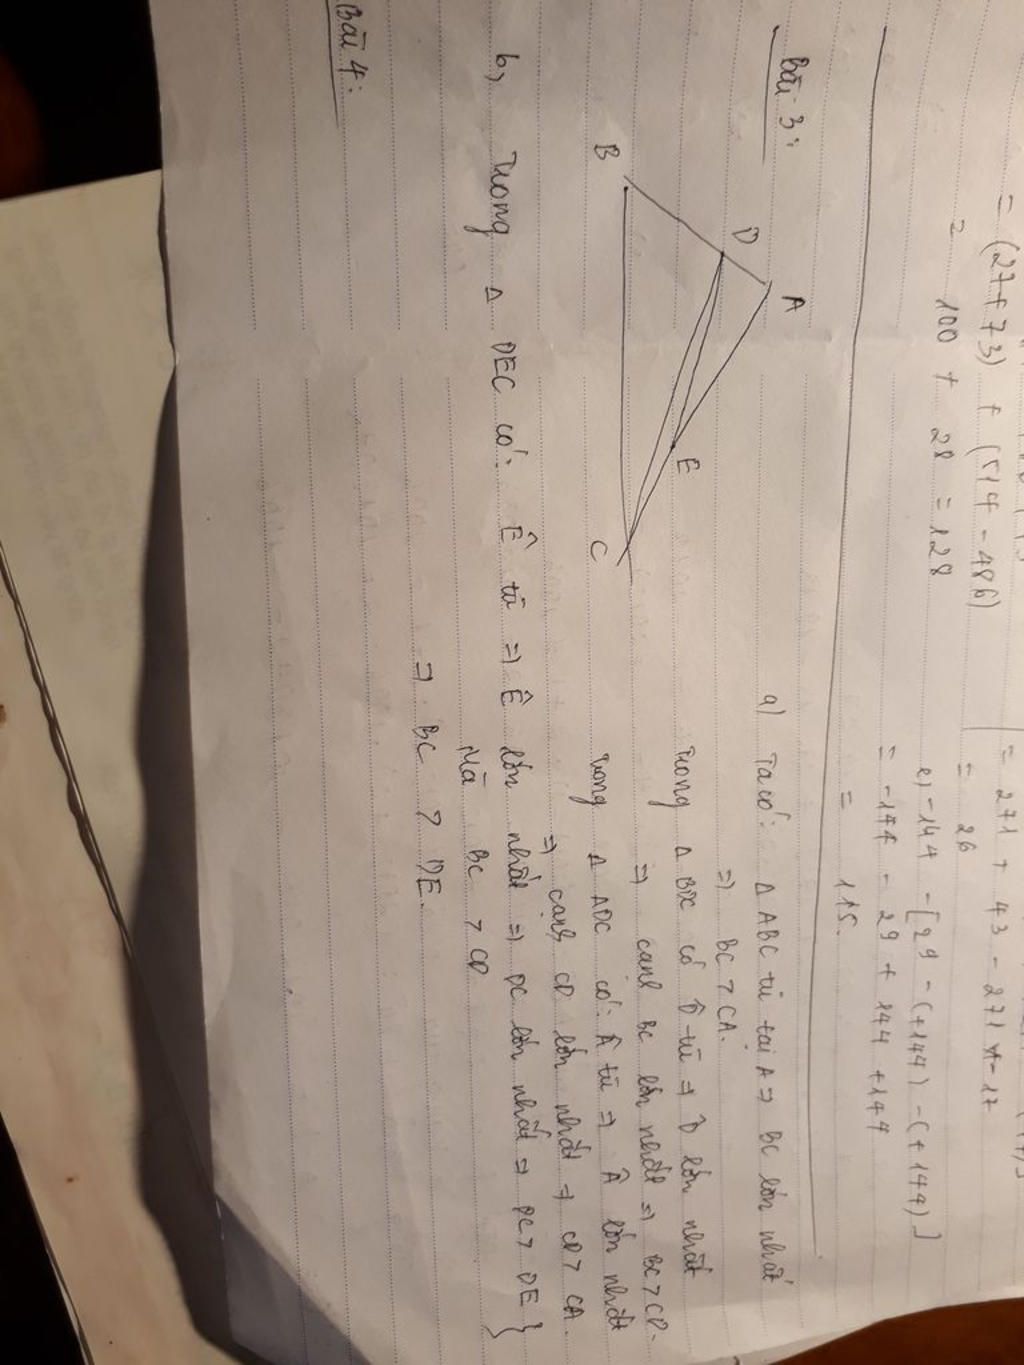 = (27+73) + (514 - 486)
= 100 + 28 = 128
= 271 + 43 - 271 - 17
= 26
e, -144 - [29 - (+144) - (+144)]
= -144 - 29 + 144 + 144
= 115.
Bài 3:
A
D
B
E
C
a) Ta có: Δ ABC tù tại A => BC lớn nhất
=> BC > CA.
Trong Δ BDC có D̂ tù => D̂ lớn nhất
=> cạnh BC lớn nhất => BC > CD.
Trong Δ ADC có: Â tù => Â lớn nhất
=> cạnh CD lớn nhất => CD > CA.
b, Trong Δ DEC có: Ê tù => Ê lớn nhất => DC lớn nhất => DC > DE }
Mà BC > CD
=> BC > DE.
Bài 4: